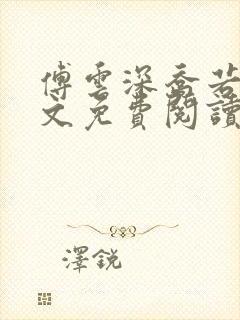 傅雲深喬若
文免費閱讀
澤銳